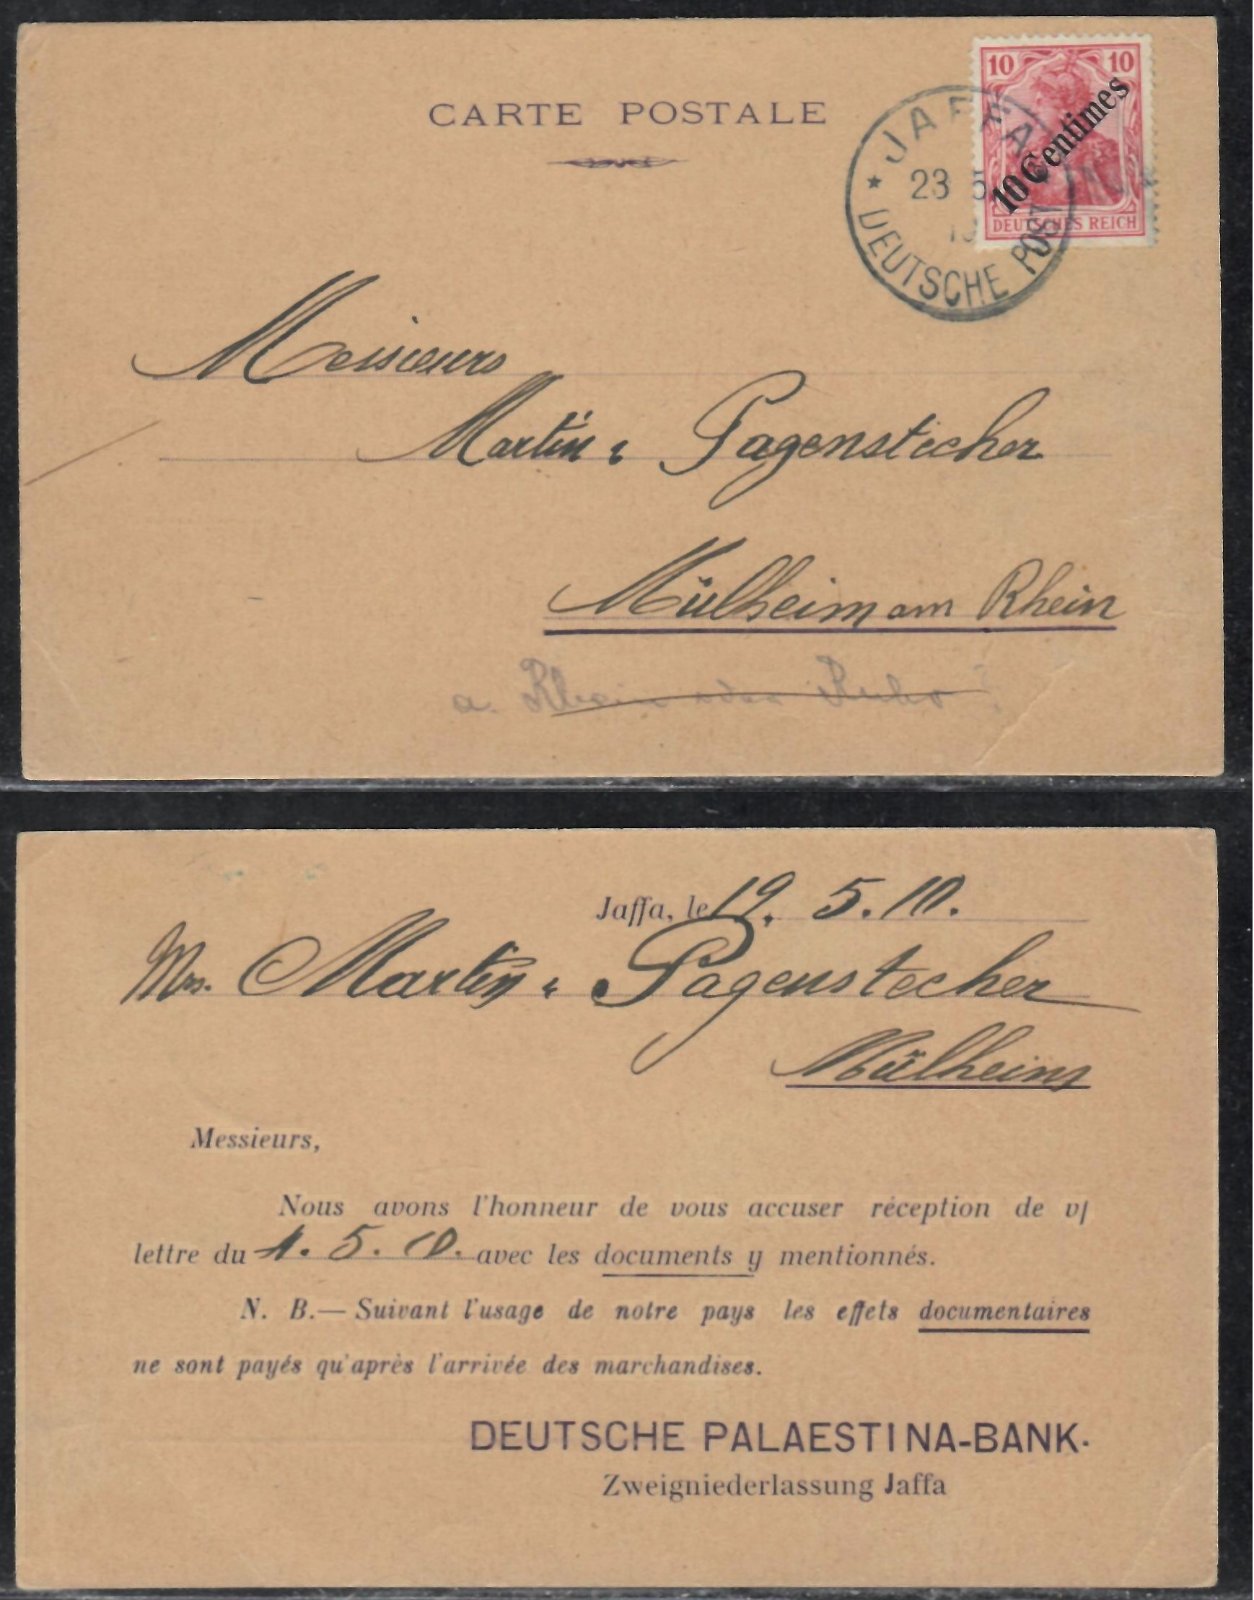 CARTE POSTALE
10 10
10 Centimes
DEUTSCHES REICH
JAFFA
23 5
DEUTSCHE POST
Messieurs
Martin & Pagenstecher
Mülheim am Rhein
a. Rhein oder Ruhr ?
Jaffa, le 19. 5. 10.
Mrs. Martin & Pagenstecher
Mülheim
Messieurs,
Nous avons l'honneur de vous accuser réception de v/
lettre du 4. 5. 10. avec les documents y mentionnés.
N. B.— Suivant l'usage de notre pays les effets documentaires
ne sont payés qu'après l'arrivée des marchandises.
DEUTSCHE PALAESTINA-BANK.
Zweigniederlassung Jaffa